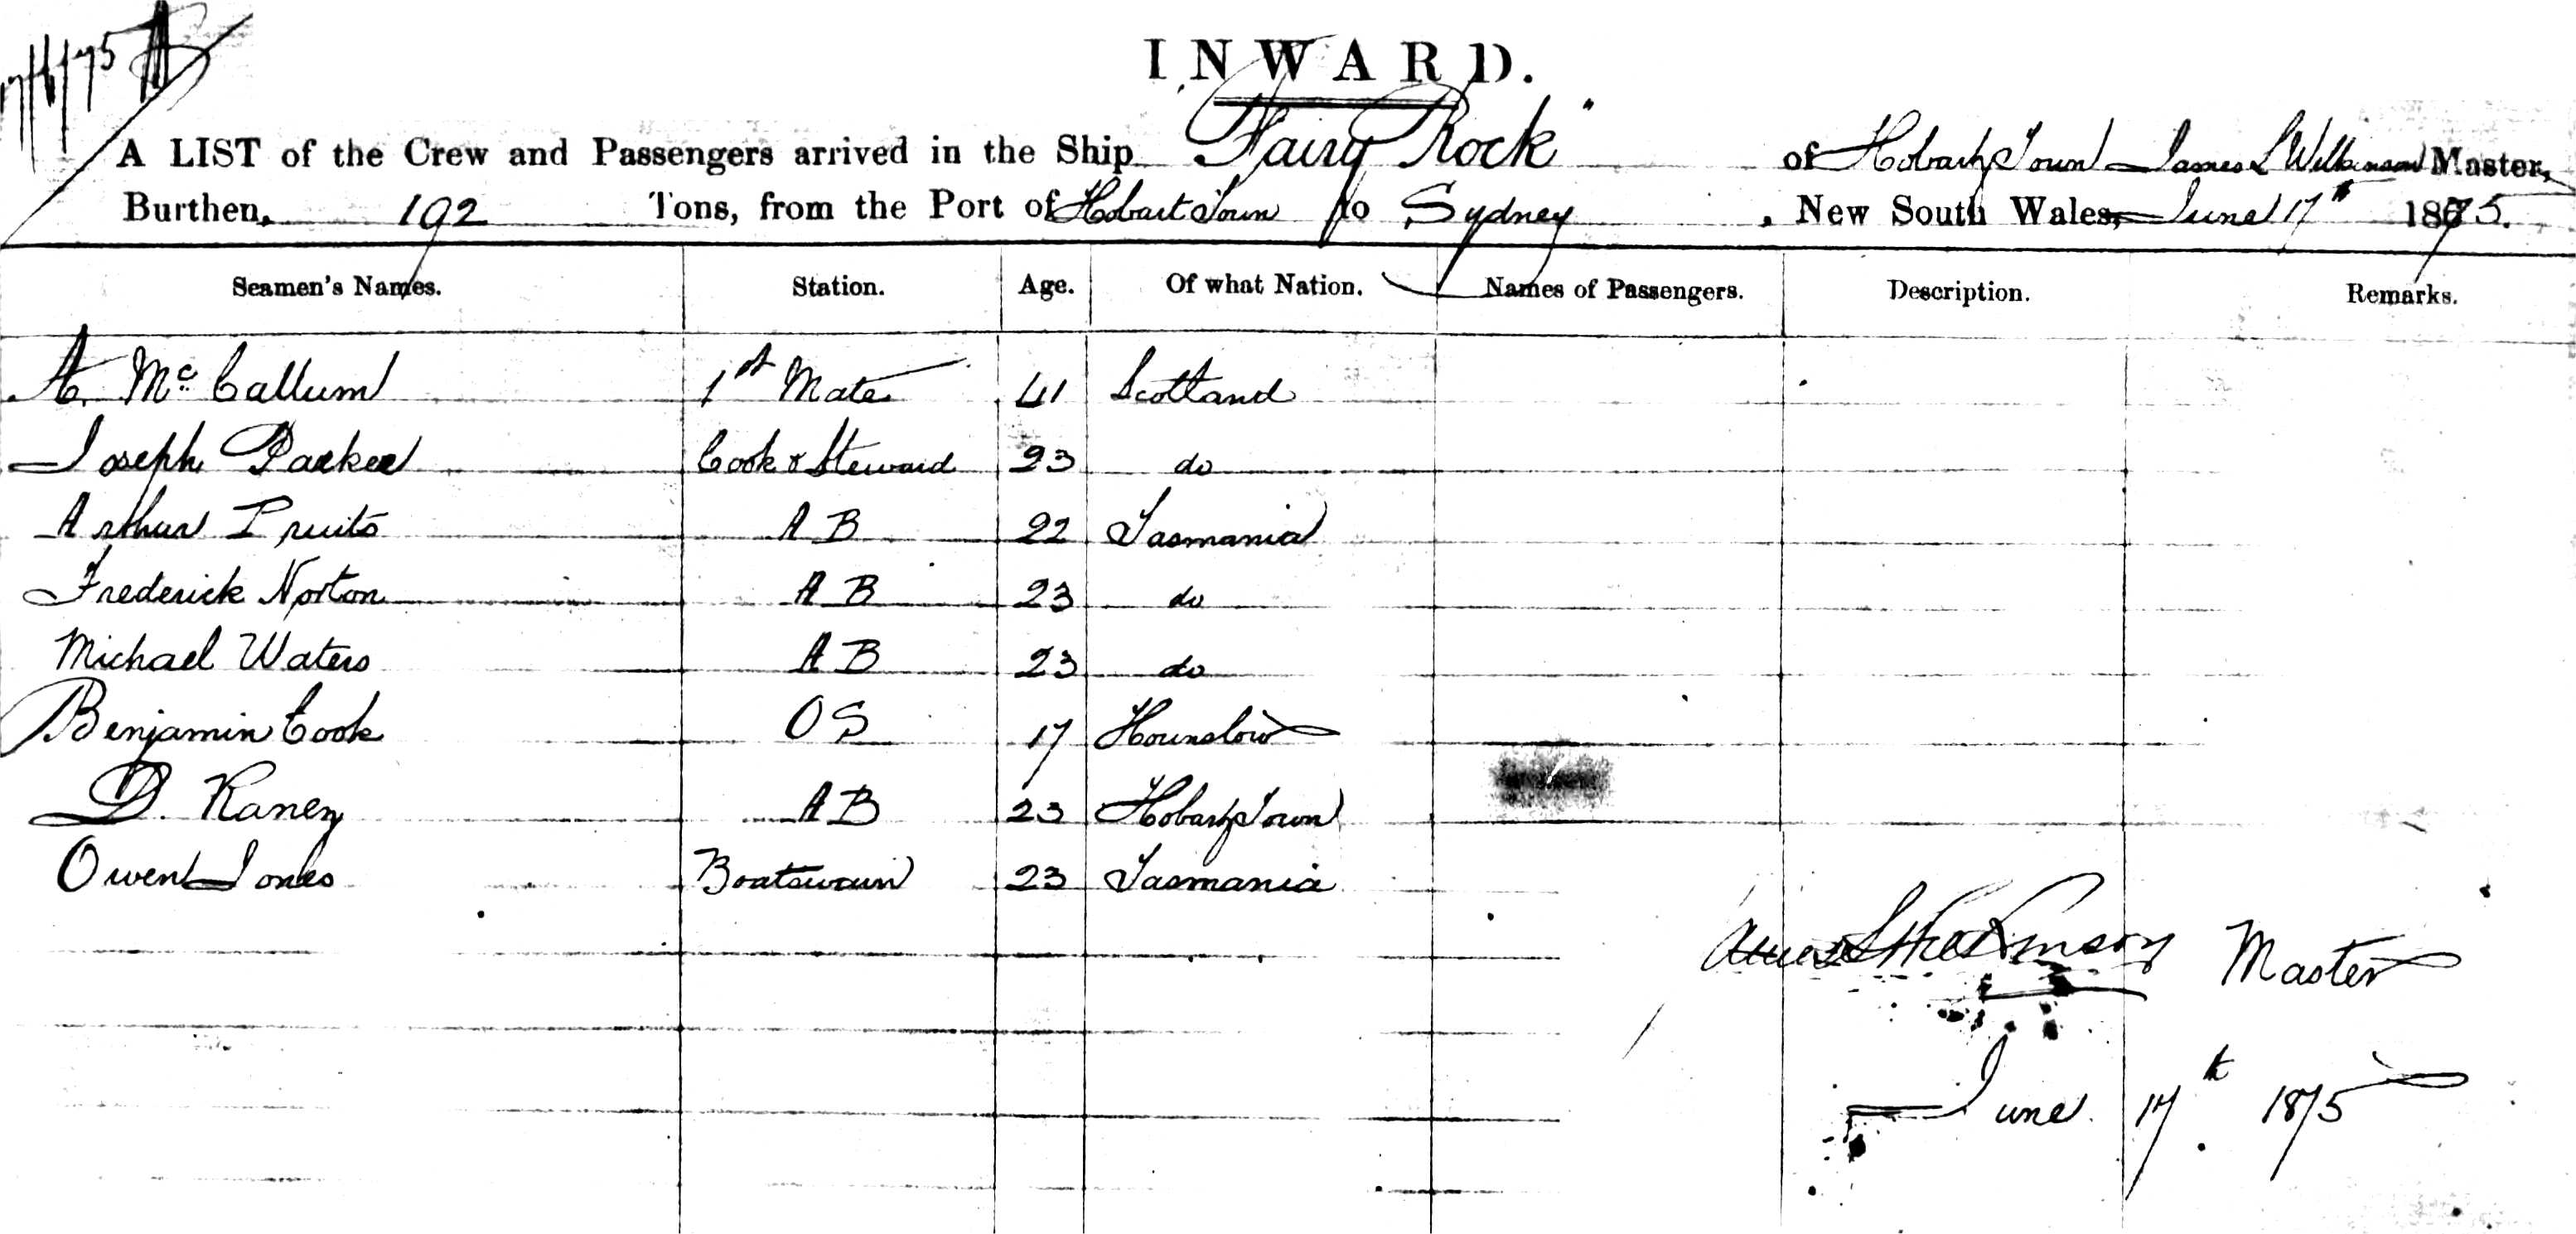 17/6/75
INWARD.
A LIST of the Crew and Passengers arrived in the Ship "Fairy Rock" of Hobart Town James L Wilkinson Master,
Burthen, 192 Tons, from the Port of Hobart Town to Sydney, New South Wales, June 17th 1875.
Seamen's Names. Station. Age. Of what Nation. Names of Passengers. Description. Remarks.
A. McCallum 1st Mate 41 Scotland
Joseph Parker Cook & Steward 23 do
Arthur A B 22 Tasmania
Frederick Norton A B 23 do
Michael Waters A B 23 do
Benjamin Cook O S 17 Hounslow
D. Raney A B 23 Hobart Town
Owen Jones Boatswain 23 Tasmania
Master
June 17th 1875